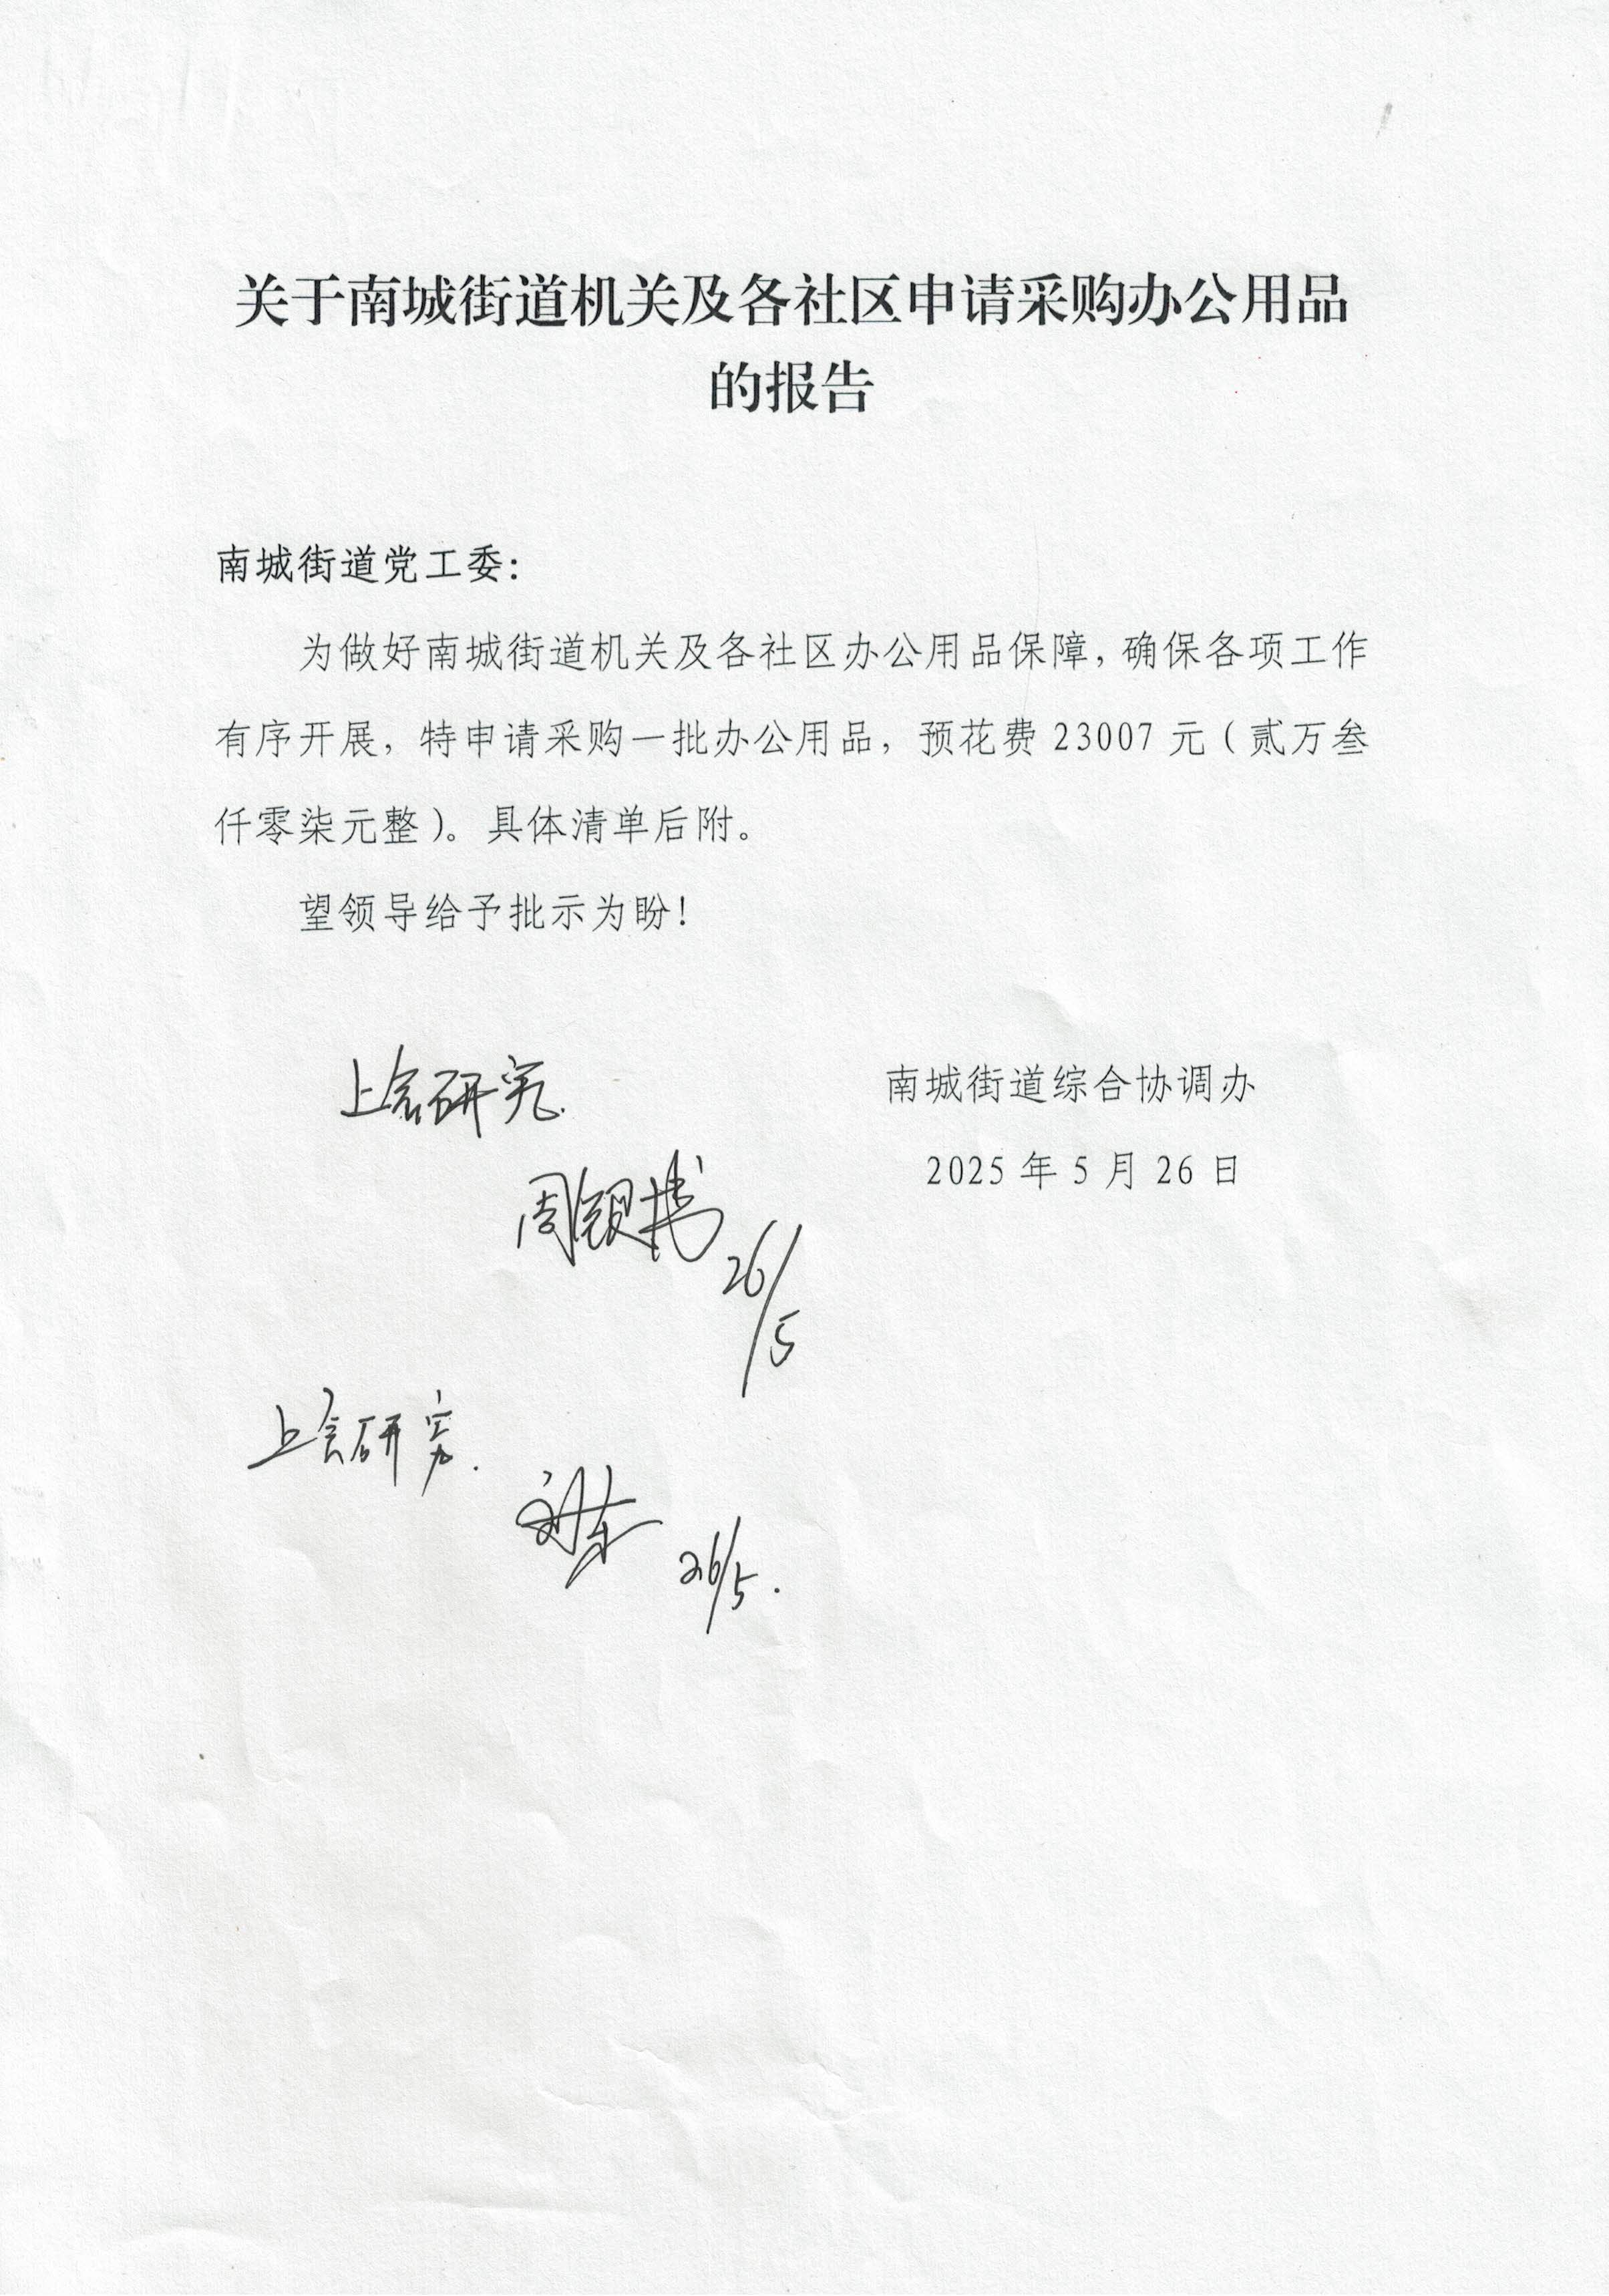 关于南城街道机关及各社区申请采购办公用品
的报告
南城街道党工委：
为做好南城街道机关及各社区办公用品保障，确保各项工作
有序开展，特申请采购一批办公用品，预花费 23007 元（贰万叁
仟零柒元整）。具体清单后附。
望领导给予批示为盼！
南城街道综合协调办
2025 年 5 月 26 日
上会研究.
周
26/5
上会研究.
26/5.